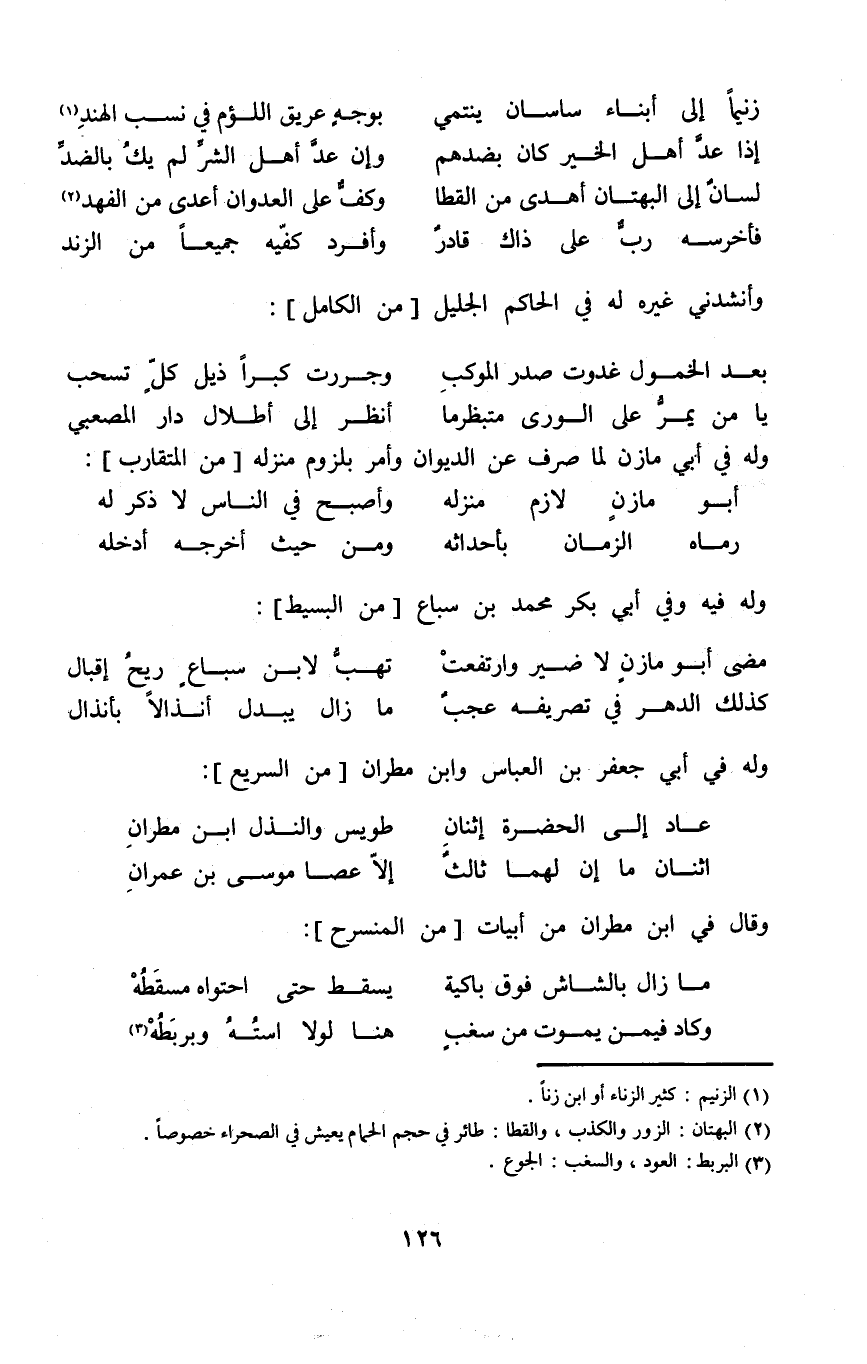 زنيماً إلى أبنـاء ساسـان ينتمي بوجـهٍ عريق اللـؤم في نسـب الهندِ(١)
إذا عدَّ أهـل الخـير كان بضدهم وإن عدَّ أهـل الشرِّ لم يكُ بالضدِّ
لسـانٌ إلى البهتـان أهـدى من القطا وكفٌّ على العدوان أعدى من الفهد(٢)
فأخرسـه ربٌّ على ذاك قادرٌ وأفـرد كفّيه جميعـاً من الزند
وأنشدني غيره له في الحاكم الجليل [ من الكامل ] :
بعـد الخمـول غدوت صدر الموكبِ وجـررت كبـراً ذيل كلّ تسحب
يا من يمـرُّ على الـورى متبظرما أنظـر إلى أطـلال دار المصعبي
وله في أبي مازن لما صرف عن الديوان وأمر بلزوم منزله [ من المتقارب ] :
أبـو مازنٍ لازم منزله وأصبـح في النـاس لا ذكر له
رمـاه الزمـان بأحداثه ومـن حيث أخرجـه أدخله
وله فيه وفي أبي بكر محمد بن سباع [ من البسيط] :
مضى أبـو مازنٍ لا ضـير وارتفعتْ تهـبُّ لابـن سبـاعٍ ريحُ إقبال
كذلك الدهـر في تصريفـه عجبٌ ما زال يبـدل أنـذالاً بأنذال
وله في أبي جعفر بن العباس وابن مطران [ من السريع ]:
عـاد إلـى الحضـرة إثنانِ طويس والنـذل ابـن مطرانِ
اثنـان ما إن لهمـا ثالثٌ إلاّ عصـا موسـى بن عمرانِ
وقال في ابن مطران من أبيات [ من المنسرح ]:
مـا زال بالشـاش فوق باكية يسقـط حتى احتواه مسقَطُهْ
وكاد فيمـن يمـوت من سغبٍ هنـا لولا استُـهُ وبربَطُهْ(٣)
(١) الزنيم : كثير الزناء أو ابن زناً .
(٢) البهتان : الزور والكذب ، والقطا : طائر في حجم الحمام يعيش في الصحراء خصوصاً .
(٣) البربط : العود ، والسغب : الجوع .
١٢٦